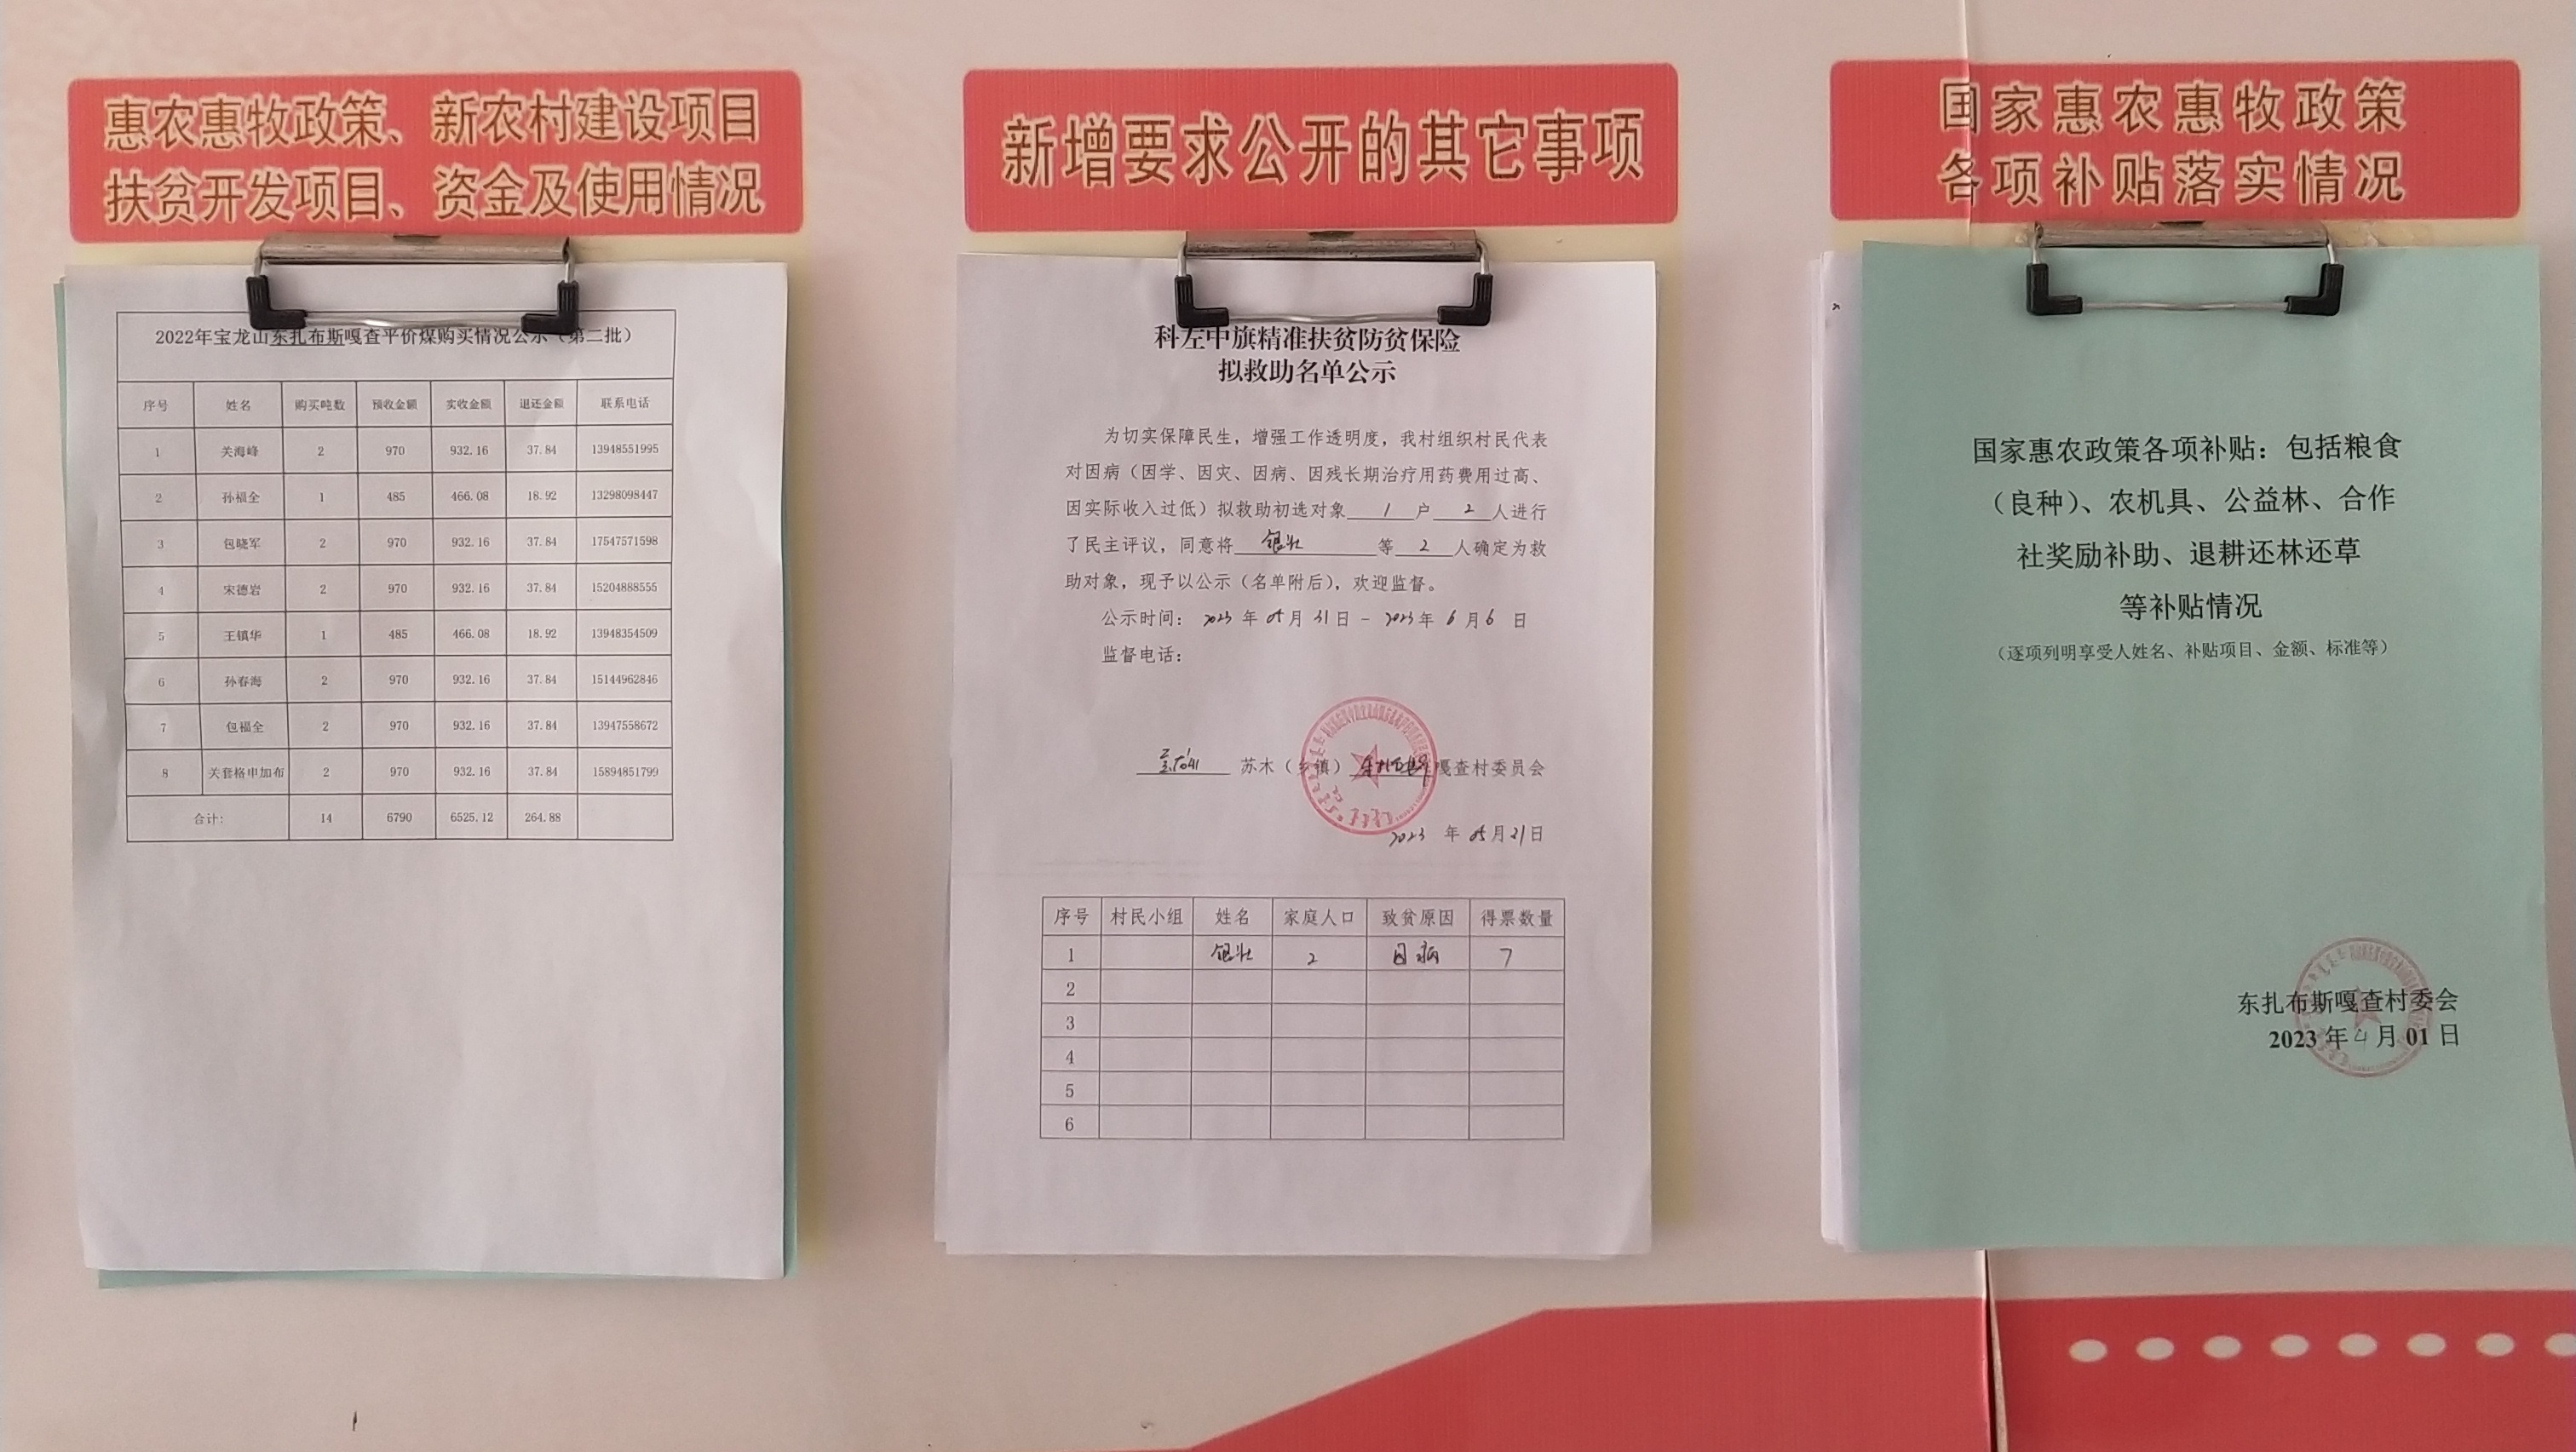 惠农惠牧政策、新农村建设项目
扶贫开发项目、资金及使用情况
2022年宝龙山东扎布斯嘎查平价煤购买情况公示（第二批）
序号 姓名 购买吨数 预收金额 实收金额 退还金额 联系电话
1 关海峰 2 970 932.16 37.84 13948551995
2 孙福全 1 485 466.08 18.92 13298098447
3 包晓军 2 970 932.16 37.84 17547571598
4 宋德岩 2 970 932.16 37.84 15204888555
5 王镇华 1 485 466.08 18.92 13948354509
6 孙春海 2 970 932.16 37.84 15144962846
7 包福全 2 970 932.16 37.84 13947558672
8 关套格申加布 2 970 932.16 37.84 15894851799
合计: 14 6790 6525.12 264.88
新增要求公开的其它事项
科左中旗精准扶贫防贫保险
拟救助名单公示
为切实保障民生，增强工作透明度，我村组织村民代表
对因病（因学、因灾、因病、因残长期治疗用药费用过高、
因实际收入过低）拟救助初选对象 1 户 2 人进行
了民主评议，同意将 银壮 等 2 人确定为救
助对象，现予以公示（名单附后），欢迎监督。
公示时间： 2023 年 05 月 31 日 - 2023 年 6 月 6 日
监督电话：
宝龙山 苏木（乡镇） 东扎布斯 嘎查村委员会
2023 年 05 月 31 日
序号 村民小组 姓名 家庭人口 致贫原因 得票数量
1 银壮 2 因病 7
2
3
4
5
6
国家惠农惠牧政策
各项补贴落实情况
国家惠农政策各项补贴：包括粮食
（良种）、农机具、公益林、合作
社奖励补助、退耕还林还草
等补贴情况
（逐项列明享受人姓名、补贴项目、金额、标准等）
东扎布斯嘎查村委会
2023 年 4 月 01 日